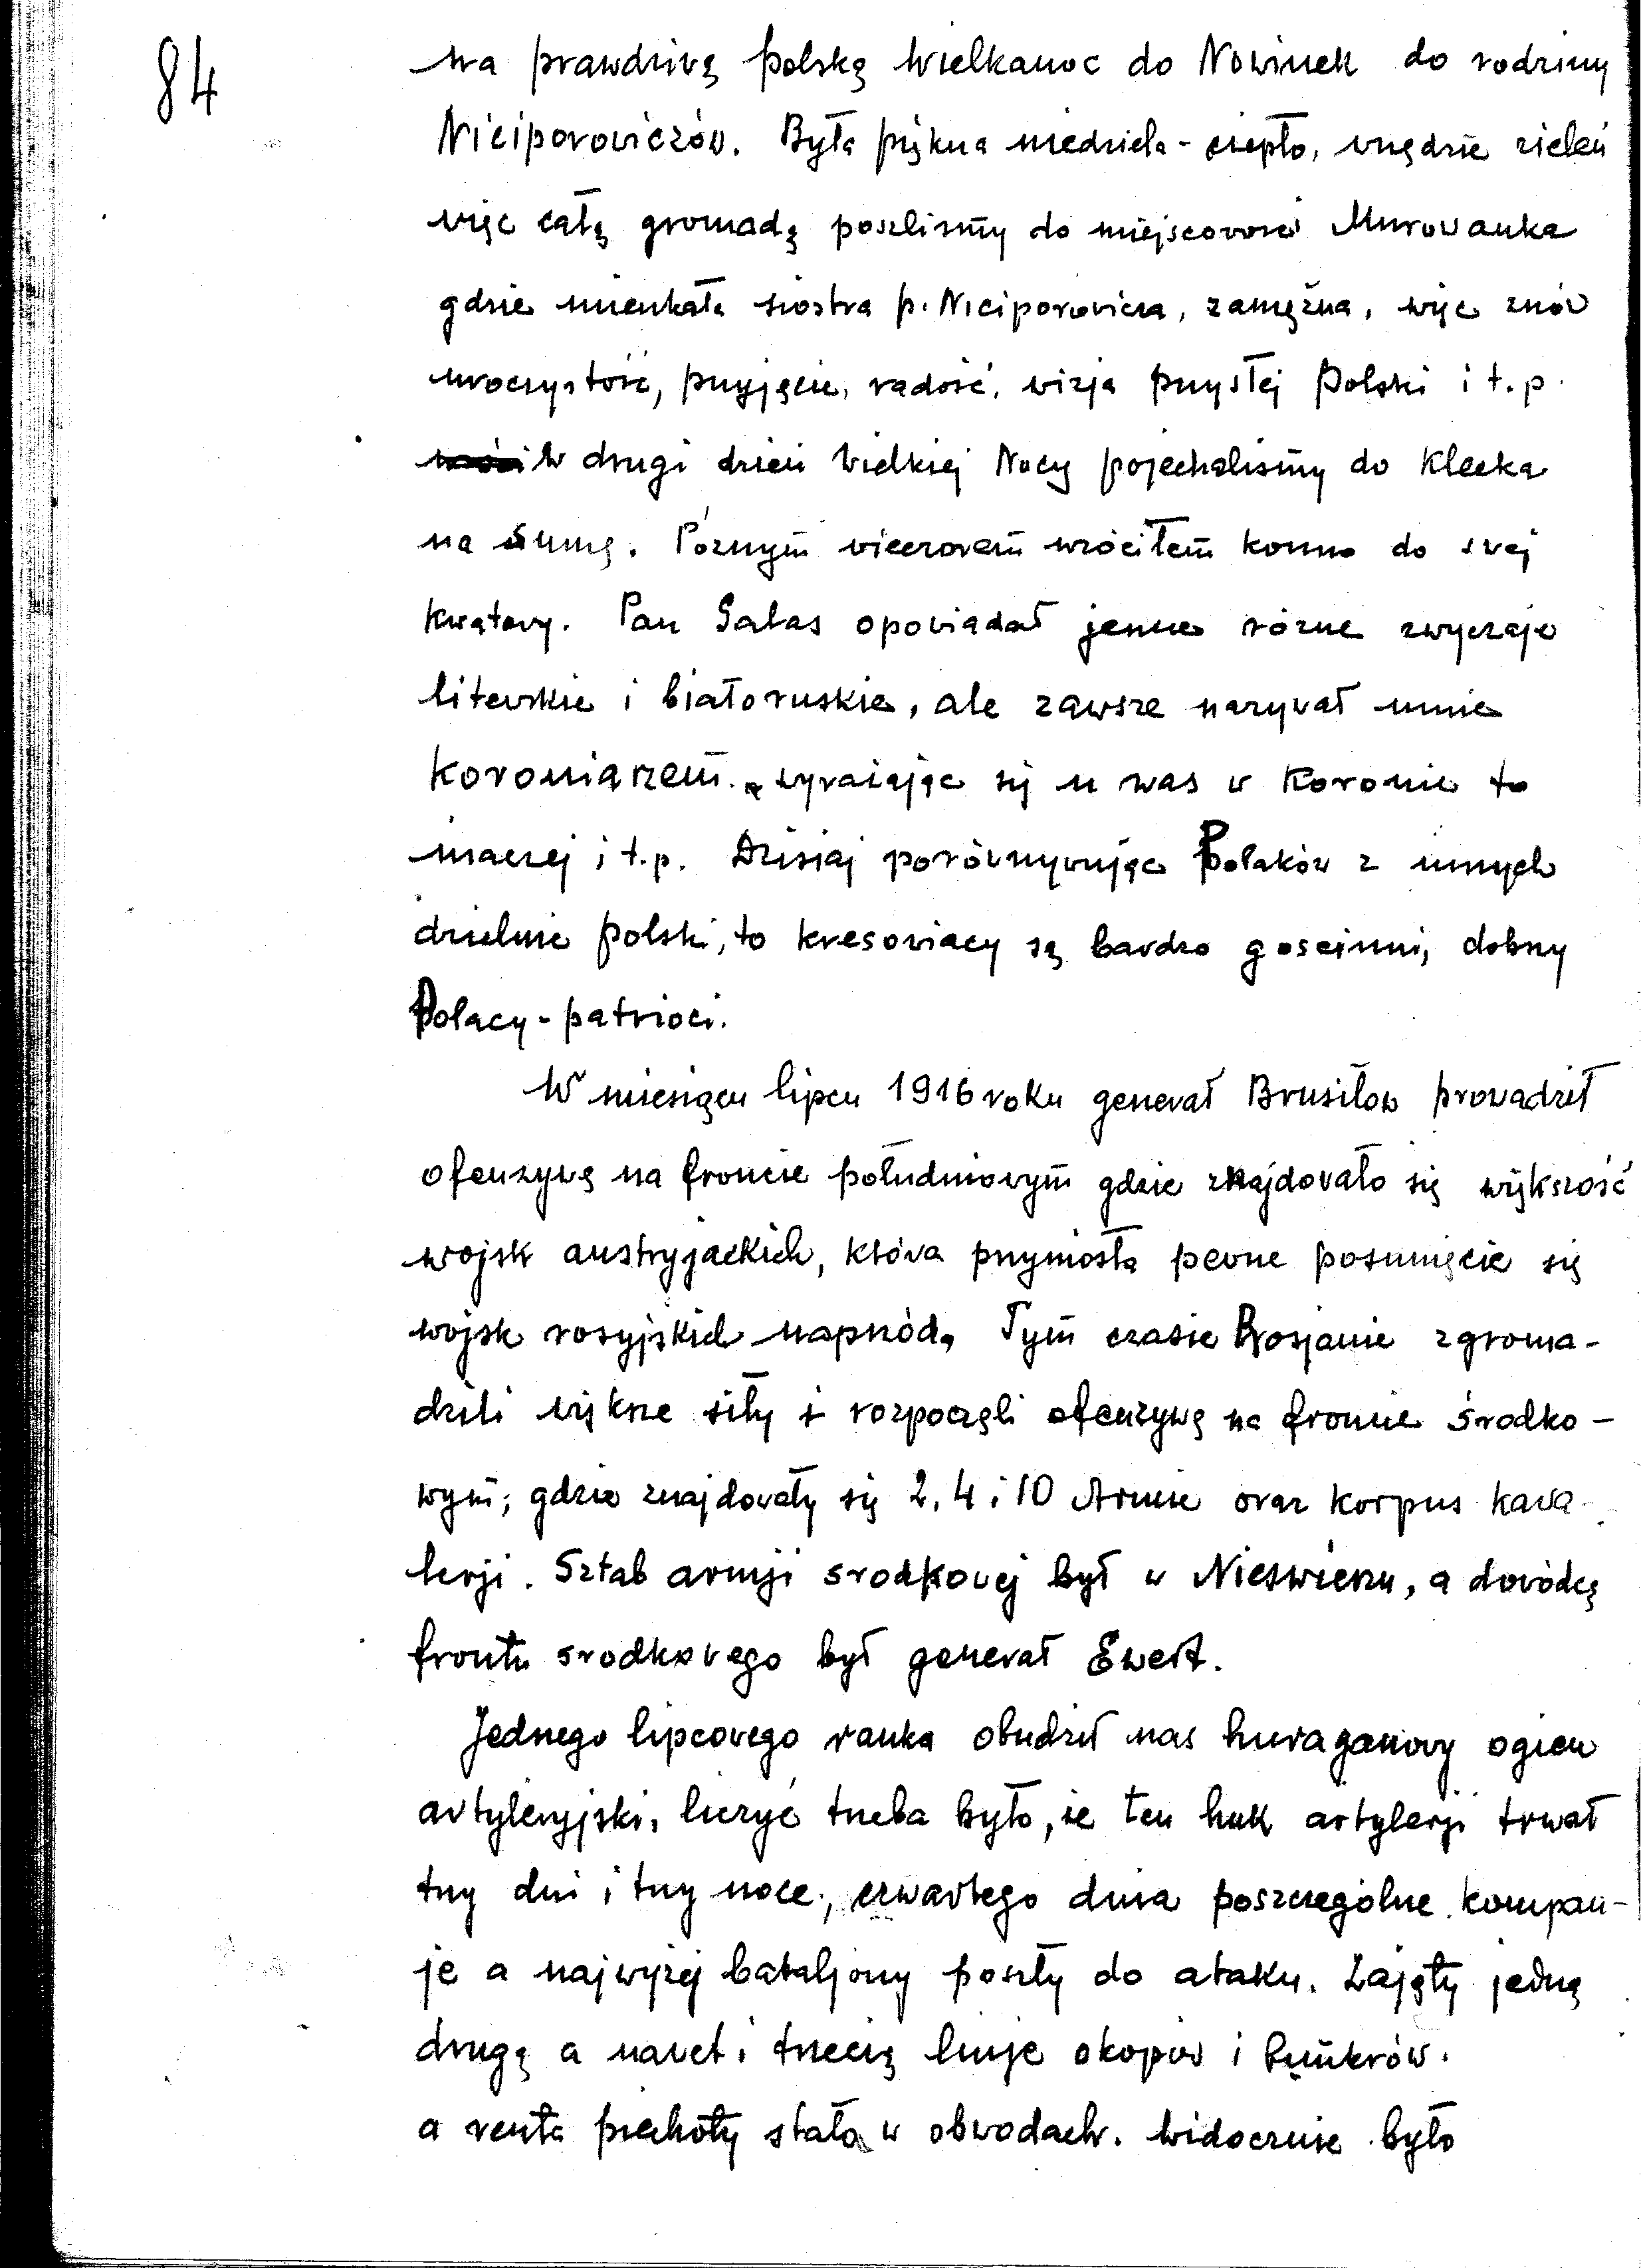 84
na prawdziwą polską Wielkanoc do Nowinek do rodziny
Niciporowiczów. Była piękna niedziela - ciepło, wszędzie zieleń
więc całą gromadą poszliśmy do miejscowości Murowanka
gdzie mieszkała siostra p. Niciporowicza, zamężna, więc znów
uroczystość, przyjęcie, radość, wizja przyszłej Polski i t.p.
W drugi dzień Wielkiej Nocy pojechaliśmy do Klecka
na sumę. Póżnym wieczorem wróciłem konno do swej
kwatery. Pan Sałas opowiadał jeszcze różne zwyczaje
litewskie i białoruskie, ale zawsze nazywał mnie
koroniarzem. wyrażając się u was w Koronie to
inaczej i t.p. Dzisiaj porównywując Polaków z innych
dzielnic polski, to kresowiacy są bardzo goscinni, dobrzy
Polacy - patrioci.
W miesiącu lipcu 1916 roku generał Brusiłow prowadził
ofenzywę na froncie południowym gdzie znajdowało się większość
wojsk austryjackich, która przyniosła pewne posunięcie się
wojsk rosyjskich naprzód, Tym czasie Rosjanie zgroma-
dzili większe siły i rozpoczęli ofenzywę na froncie środko-
wym; gdzie znajdowały się 2, 4 i 10 Armie oraz korpus kawa-
lerji. Sztab armji srodkowej był w Nieswierzu, a dowódcą
frontu srodkowego był generał Ewert.
Jednego lipcowego ranka obudził nas huraganowy ogien
artyleryjski, liczyć trzeba było, że ten huk artylerji trwał
trzy dni i trzy noce, czwartego dnia poszczególne kompan-
je a najwyżej bataljony poszły do ataku. Zajęły jedną
drugą a nawet i trzecią linje okopów i bunkrów.
a reszta piechoty stała w obwodach. widocznie było